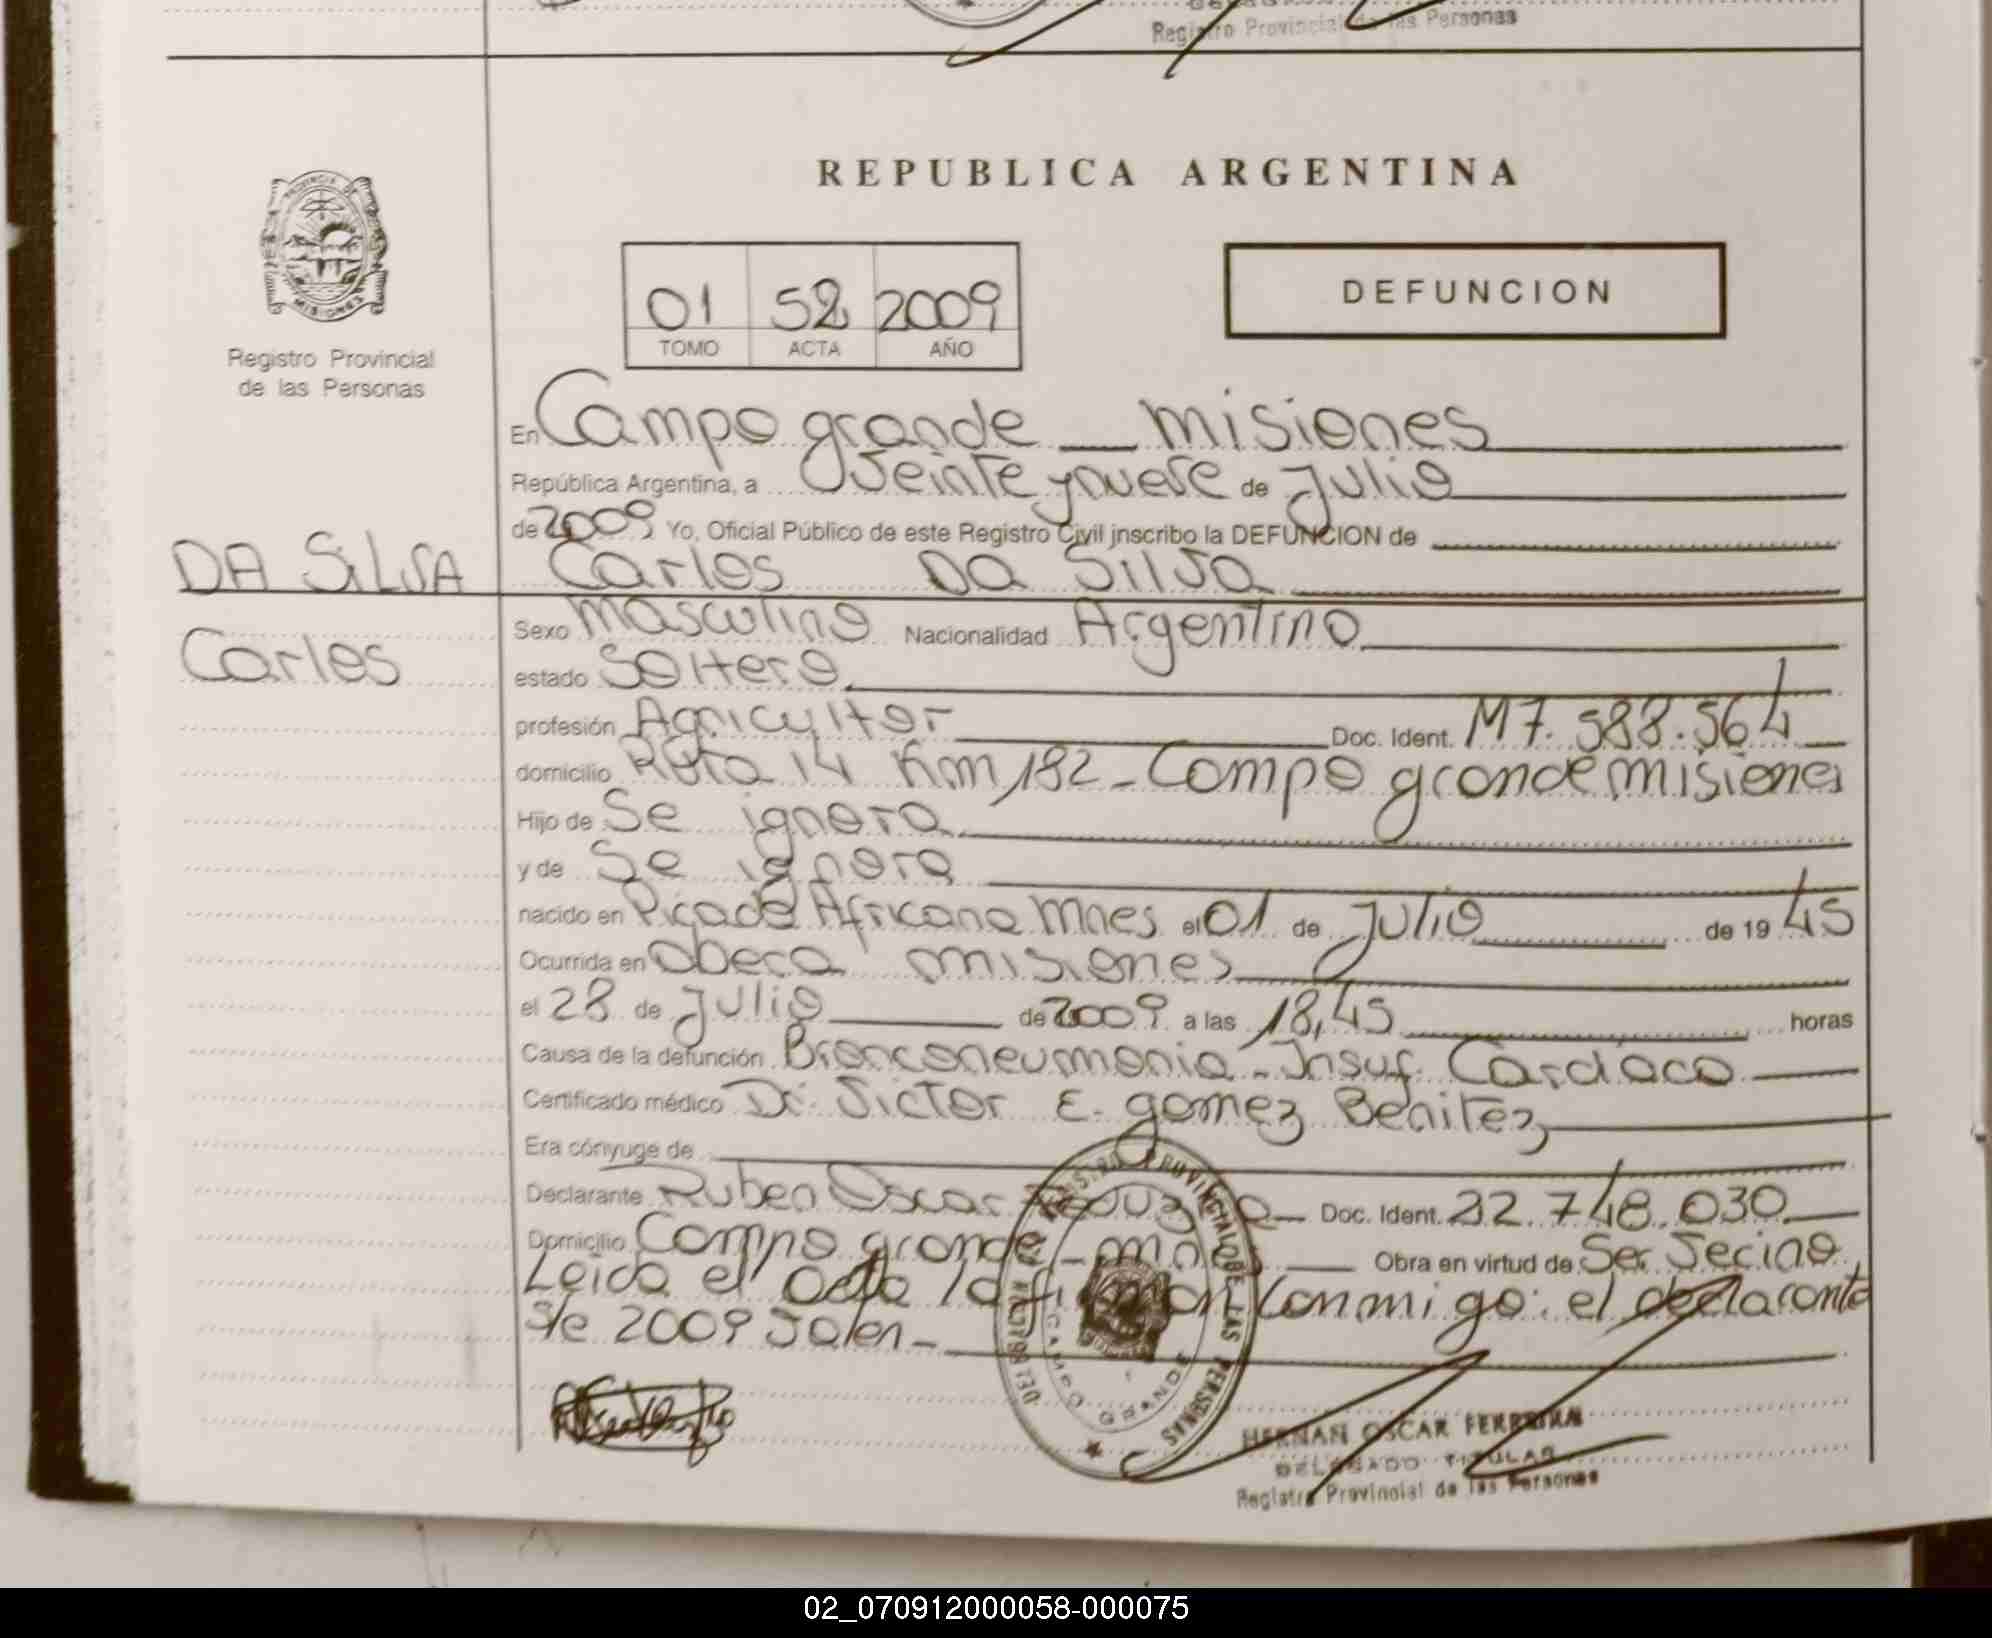 Registro Provincial de las Personas
PROVINCIA DE
MISIONES
Registro Provincial
de las Personas
REPUBLICA ARGENTINA
01 52 2009
TOMO ACTA AÑO
DEFUNCION
En Campo grande _ misiones
República Argentina, a Veinte y nueve de Julio
de 2009 Yo, Oficial Público de este Registro Civil inscribo la DEFUNCION de
DA SILVA
Carlos
Carlos Da Silva
Sexo Masculino Nacionalidad Argentino
estado Soltero
profesión Agricultor Doc. Ident. M7.588.564
domicilio Ruta 14 Km 182 - Campo grande misiones
Hijo de Se ignora
y de Se ignora
nacido en Picada Africana Mnes el 01 de Julio de 19 45
Ocurrida en Obera misiones
el 28 de Julio de 2009 a las 18,45 horas
Causa de la defunción Bronconeumonia - Insuf. Cardiaca
Certificado médico Dr. Victor E. gomez Benitez
Era cónyuge de
Declarante Ruben Oscar Doc. Ident. 22.748.030
Domicilio Campo grande - mnes Obra en virtud de Ser Vecino
Leida el acta la firman conmigo: el declarante
s/e 2009 Valen -
REGISTRO PROVINCIAL DE LAS PERSONAS
CAMPO GRANDE
HERNAN OSCAR FERREIRA
DELEGADO TITULAR
Registro Provincial de las Personas
02_070912000058-000075